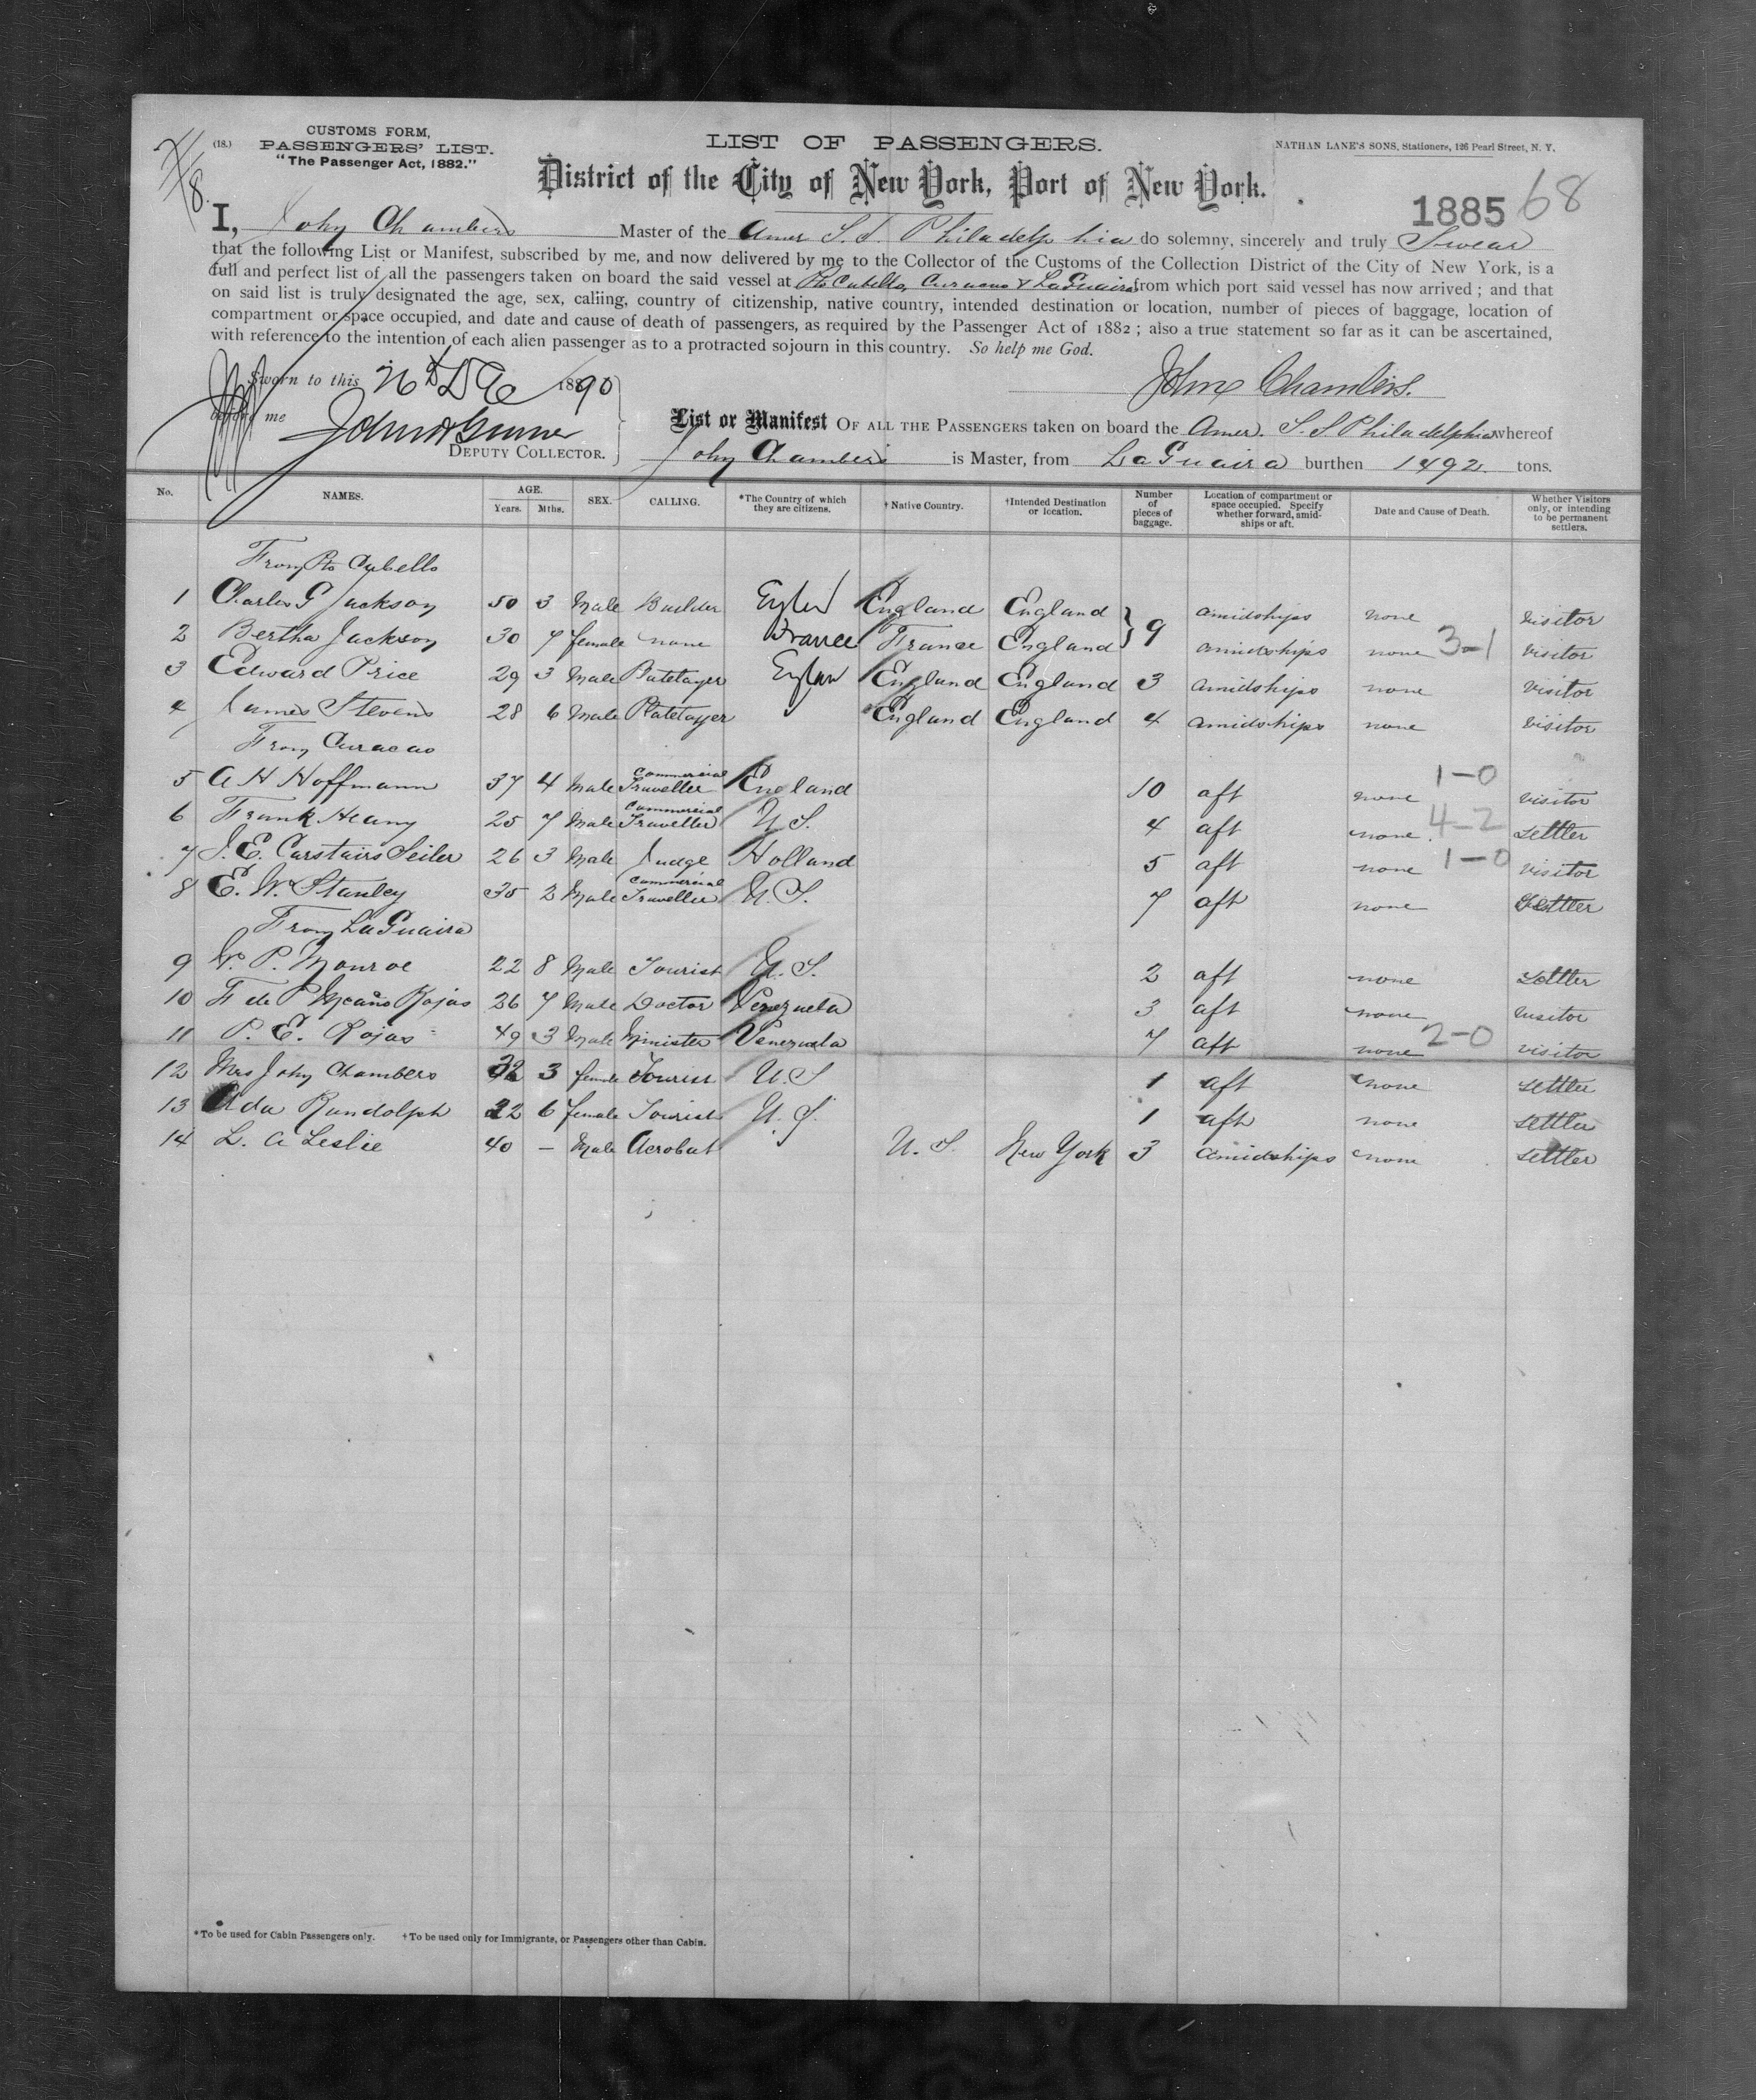 (18.) CUSTOMS FORM,
PASSENGERS' LIST.
"The Passenger Act, 1882."
LIST OF PASSENGERS.
NATHAN LANE'S SONS, Stationers, 126 Pearl Street, N. Y.
District of the City of New York, Port of New York.
1885 68
I, John Chambers Master of the Amer S.S. Philadelphia do solemny, sincerely and truly Swear
that the following List or Manifest, subscribed by me, and now delivered by me to the Collector of the Customs of the Collection District of the City of New York, is a
full and perfect list of all the passengers taken on board the said vessel at Pto Cabello, Curacao & LaGuaira from which port said vessel has now arrived ; and that
on said list is truly designated the age, sex, calling, country of citizenship, native country, intended destination or location, number of pieces of baggage, location of
compartment or space occupied, and date and cause of death of passengers, as required by the Passenger Act of 1882 ; also a true statement so far as it can be ascertained,
with reference to the intention of each alien passenger as to a protracted sojourn in this country. So help me God.
Sworn to this 26th 1890
John Chambers.
before me
DEPUTY COLLECTOR.
List or Manifest OF ALL THE PASSENGERS taken on board the Amer. S.S Philadelphia whereof
John Chambers is Master, from LaGuaira burthen 1492 tons.
No. NAMES. AGE. Years. Mths. SEX. CALLING. *The Country of which they are citizens. †Native Country. †Intended Destination or location. Number of pieces of baggage. Location of compartment or space occupied. Specify whether forward, amidships or aft. Date and Cause of Death. Whether Visitors only, or intending to be permanent settlers.
From Pto Cabello
1 Charles G Jackson 50 3 Male Builder England England } 9 amidships none visitor
2 Bertha Jackson 30 7 female none France France England amidships none 3-1 visitor
3 Edward Price 29 3 Male Platelayer England England 3 amidships none visitor
4 James Stevens 28 6 Male Platelayer England England 4 amidships none visitor
From Curacao
5 A H Hoffmann 37 4 Male Commercial Traveller England 10 aft none 1-0 visitor
6 Frank Heany 25 7 Male Commercial Traveller U S. 4 aft none 4-2 settler
7 J. E. Carstairs Seiler 26 3 Male Judge Holland 5 aft none 1-0 visitor
8 E. W. Stanley 35 2 Male Commercial Traveller U. S. 7 aft none settler
From LaGuaira
9 W. P. Monroe 22 8 Male Tourist U. S. 2 aft none settler
10 F de P Rojas 26 7 Male Doctor Venezuela 3 aft none visitor
11 P. E. Rojas 49 3 Male Minister Venezuela 7 aft none 2-0 visitor
12 Mrs John Chambers 3 female Tourist U. S 1 aft none settler
13 Ada Randolph 22 6 female Tourist U. S. 1 aft none settler
14 L. A Leslie 40 – Male Acrobat U. S. New York 3 amidships none settler
*To be used for Cabin Passengers only. †To be used only for Immigrants, or Passengers other than Cabin.